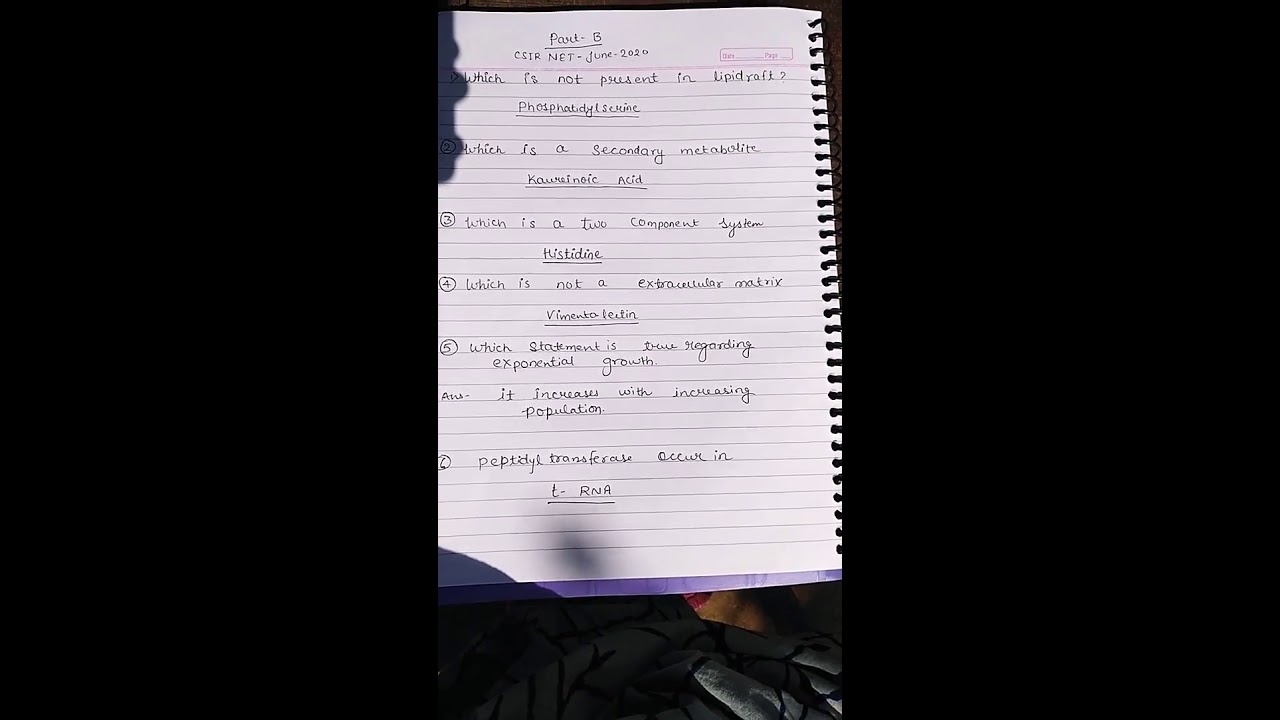 Part- B
CSIR NET - June - 2020
Date Page
1) Which is not present in lipidraft?
Phosphatidylserine
② Which is a secondary metabolite
Kaureinoic Acid
③ Which is a two component system
Histidine
④ Which is not a extracellular matrix
Vimenta lectin
⑤ Which Statement is true regarding
exponential growth.
Ans- it increases with increasing
population.
6 peptidyl transferase occur in
t- RNA